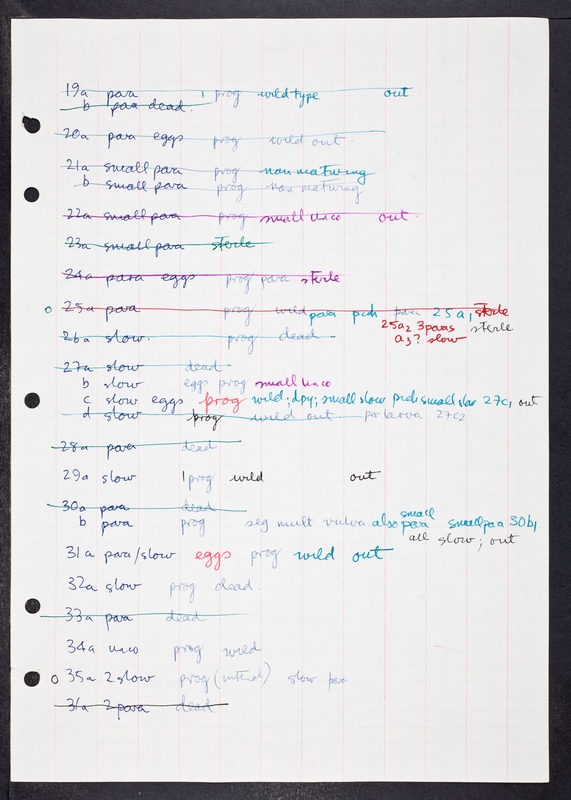 19a para 1 prog wild type out
b para dead.
20a para eggs prog wild out.
21a small para prog non maturing
b small para prog non maturing
22a small para prog small unco out.
23a small para sterle
24a para eggs prog para sterle
25a para prog wild para pich para 25a1 sterle
25a2 3 paras sterle
a3? slow
26a slow. prog dead
27a slow dead
b slow eggs prog small unco
c slow eggs prog wild; dpy; small slow small slow 27c1 out
d slow prog wild out par larva 27c2
28a para dead
29a slow 1 prog wild out
30a para dead
small
b para prog seg mult vulva also para small para 30b1
all slow; out
31a para/slow eggs prog wild out
32a slow prog dead.
33a para dead
34a unco prog wild
35a 2 slow prog (internal) slow para.
31a 2 para dead